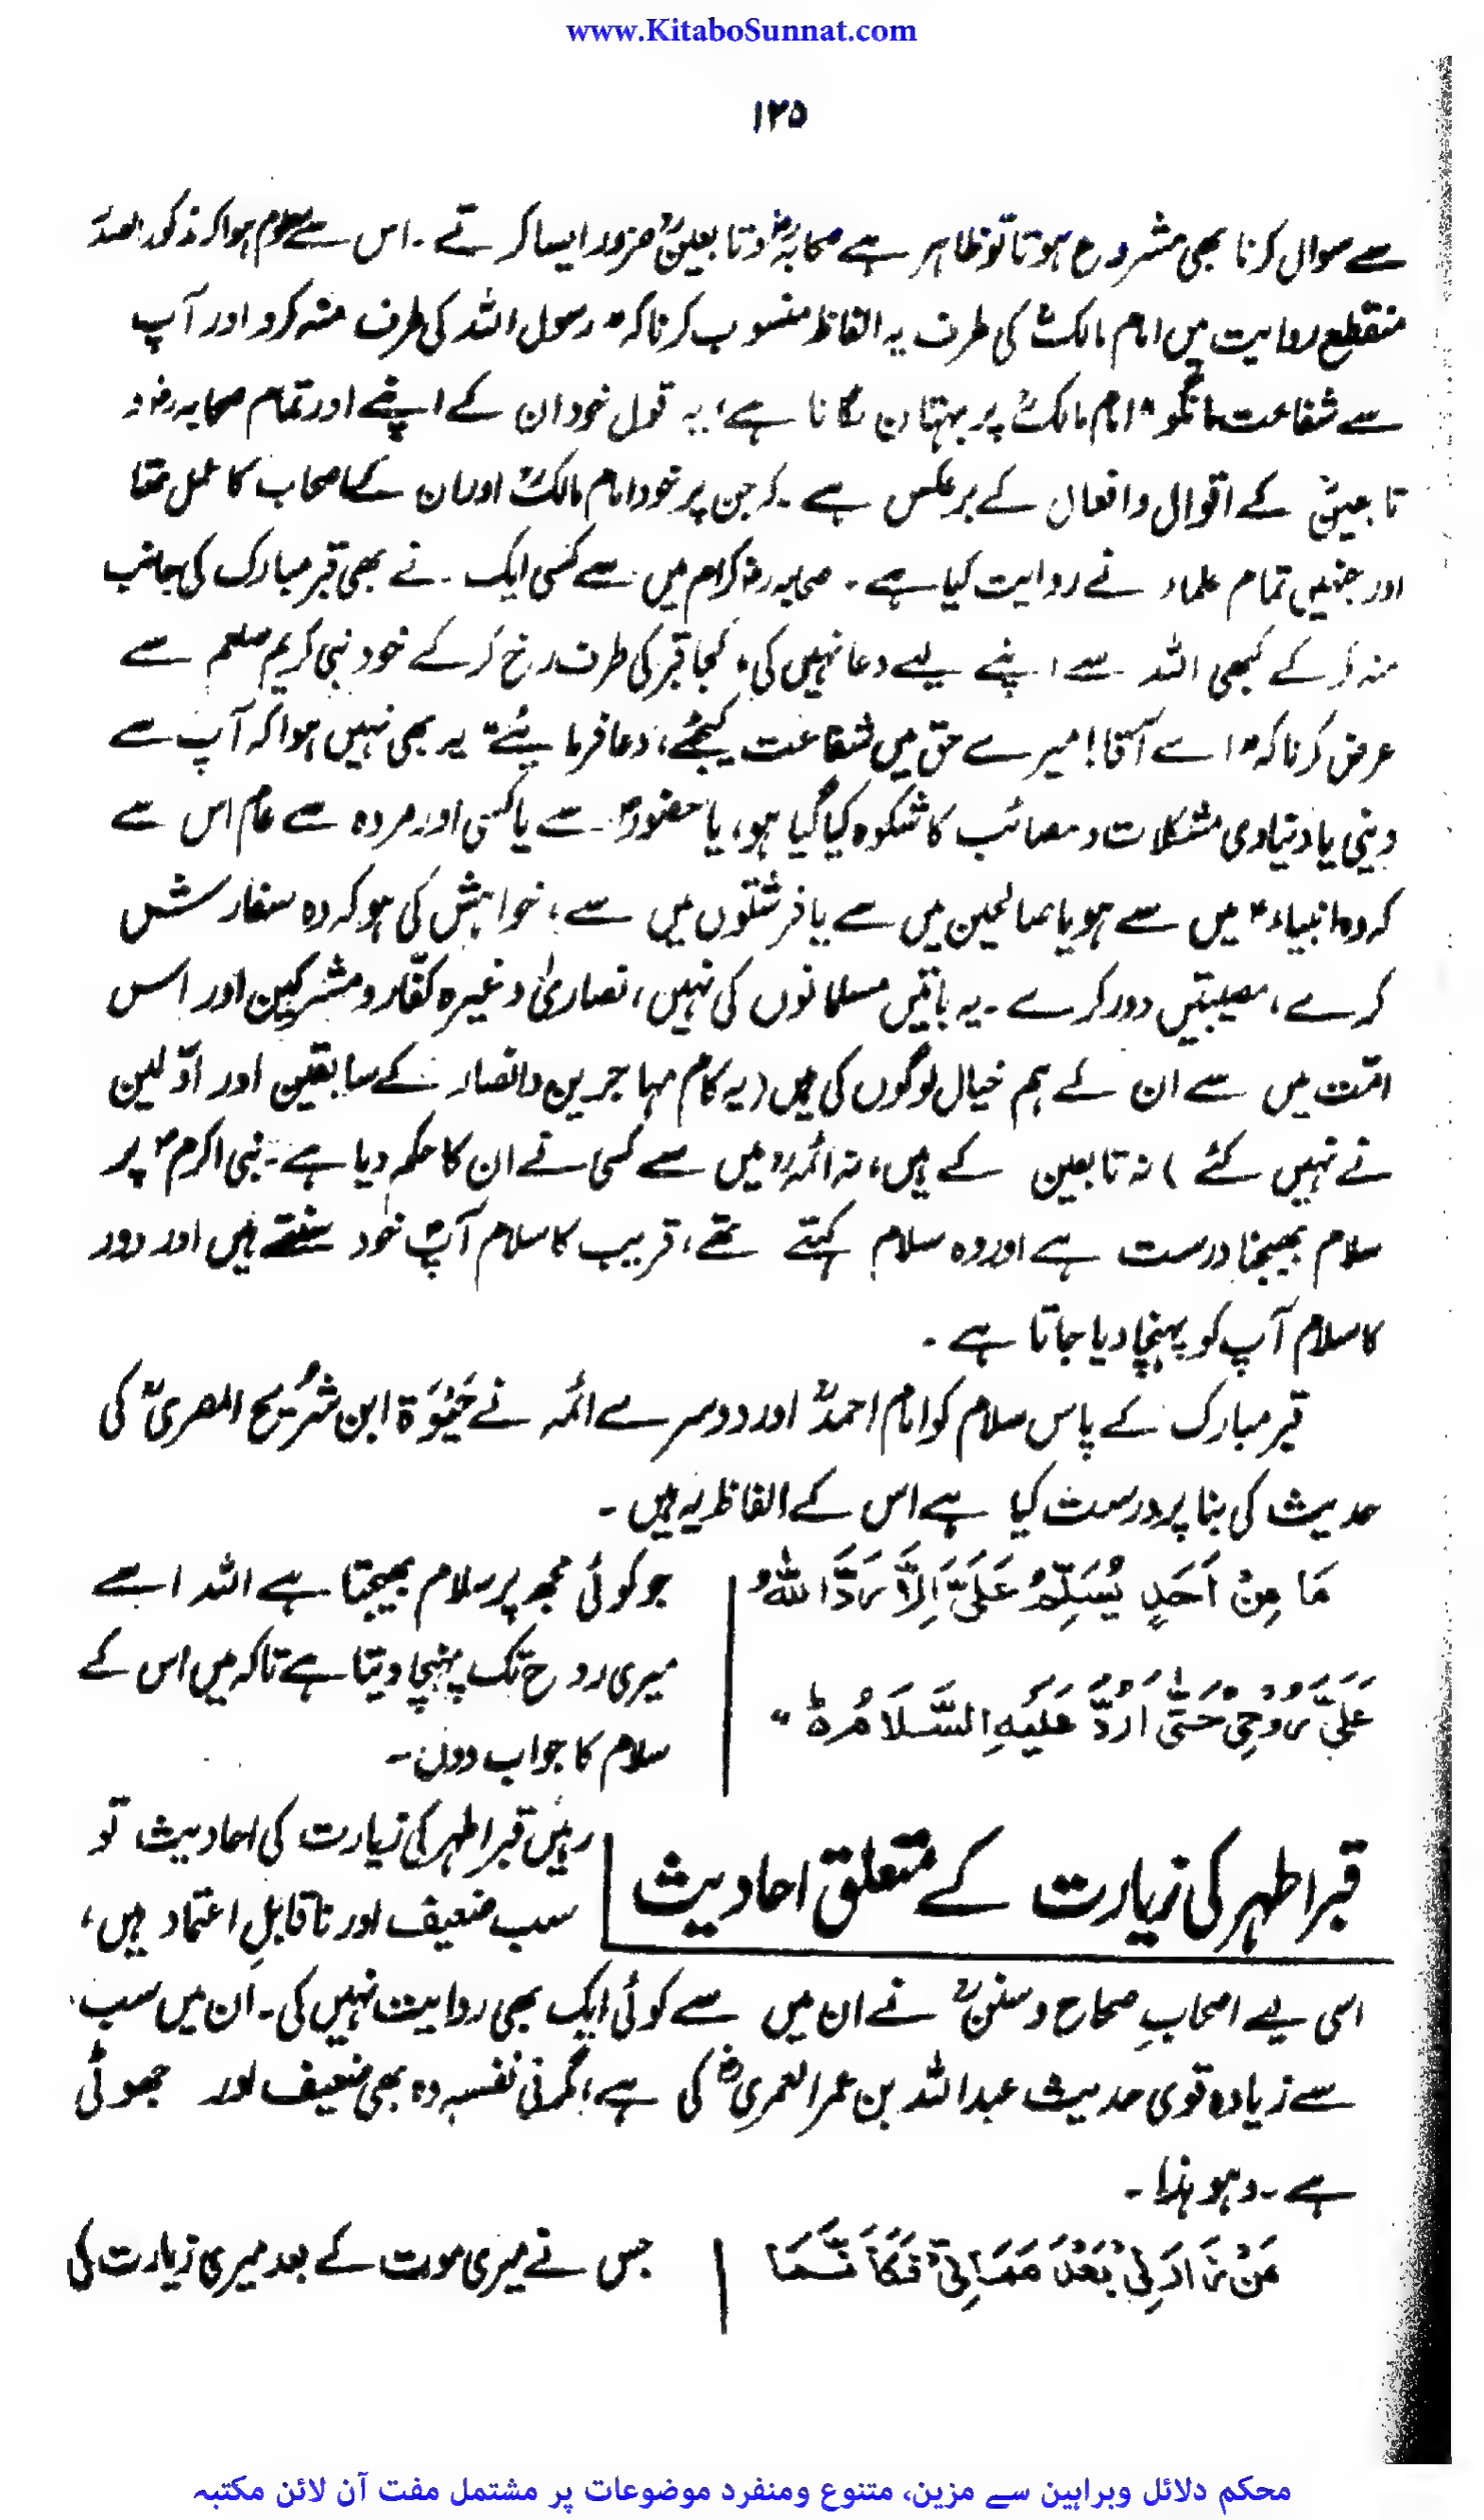 www.KitaboSunnat.com
۱۲۵
سے سوال کرنا بھی مشروع ہوتا تو ظاہر ہے صحابہؓ و تابعینؒ ضرور ایسا کرتے ۔ اس سے معلوم ہوا کہ مذکور الصدر
منقطع روایت میں امام مالکؒ کی طرف یہ الفاظ منسوب کرنا کہ "رسول اللہ کی طرف منہ کرو اور آپ
سے شفاعت مانگو" امام مالکؒ پر بہتان لگانا ہے، یہ قول خود ان کے اپنے اور تمام صحابہ رضؓ و
تابعینؒ کے اقوال و افعال کے برعکس ہے ۔ کہ جن پر خود امام مالکؒ اور ان کے اصحاب کا عمل تھا
اور جنہیں تمام علماء نے روایت کیا ہے ۔ صحابہ رضؓ کرام میں سے کسی ایک نے بھی قبر مبارک کی جانب
منہ کر کے کبھی اللہ سے اپنے لیے دعا نہیں کی، کجا قبر کی طرف رخ کر کے خود نبی کریم صلعم سے
عرض کرنا کہ "اے آقا! میرے حق میں شفاعت کیجئے، دعا فرمایئے" یہ بھی نہیں ہوا کہ آپ سے
دینی یا دنیاوی مشکلات و مصائب کا شکوہ کیا گیا ہو، یا حضورؐ سے یا کسی اور مردہ سے عام اس سے
کہ وہ انبیاءؑ میں سے ہو یا صالحین میں سے یا فرشتوں میں سے، خواہش کی ہو کہ وہ سفارش
کرے، مصیبتیں دور کرے ۔ یہ باتیں مسلمانوں کی نہیں، نصاریٰ وغیرہ کفّار و مشرکین اور اس
امّت میں سے ان کے ہم خیال لوگوں کی ہیں (یہ کام مہاجرین و انصار کے سابقین اور اوّلین
نے نہیں کئے) نہ تابعین کے ہیں، نہ ائمہؒ میں سے کسی نے ان کا حکم دیا ہے ۔ نبی اکرمؐ پر
سلام بھیجنا درست ہے اور وہ سلام کہتے تھے، قریب کا سلام آپؐ خود سنتے ہیں اور دور
کا سلام آپ کو پہنچا دیا جاتا ہے ۔
قبر مبارک کے پاس سلام کو امام احمدؒ اور دوسرے ائمہ نے حَیْوَۃ ابن شُرَیح المصریؒ کی
حدیث کی بنا پر درست کیا ہے اس کے الفاظ یہ ہیں ۔
مَا مِنْ اَحَدٍ یُسَلِّمُ عَلَیَّ اِلَّا رَدَّ اللهُ
عَلَیَّ رُوْحِیْ حَتّٰی اَرُدَّ عَلَیْہِ السَّلَامُ ط "
جو کوئی مجھ پر سلام بھیجتا ہے اللہ اسے
میری روح تک پہنچا دیتا ہے تاکہ میں اس کے
سلام کا جواب دوں ۔
قبر اطہر کی زیارت کے متعلق احادیث
رہیں قبر اطہر کی زیارت کی احادیث تو
سب ضعیف اور ناقابلِ اعتماد ہیں،
اسی لیے اصحابِ صحاح و سننؒ نے ان میں سے کوئی ایک بھی روایت نہیں کی ۔ ان میں سب
سے زیادہ قوی حدیث عبداللہ بن عمر العمریؒ کی ہے، مگر فی نفسہ وہ بھی ضعیف اور جھوٹی
ہے ۔ وہو ہذا ۔
مَنْ زَارَنِیْ بَعْدَ مَمَاتِیْ فَکَاَنَّمَا
جس نے میری موت کے بعد میری زیارت کی
محکم دلائل وبراہین سے مزین، متنوع ومنفرد موضوعات پر مشتمل مفت آن لائن مکتبہ